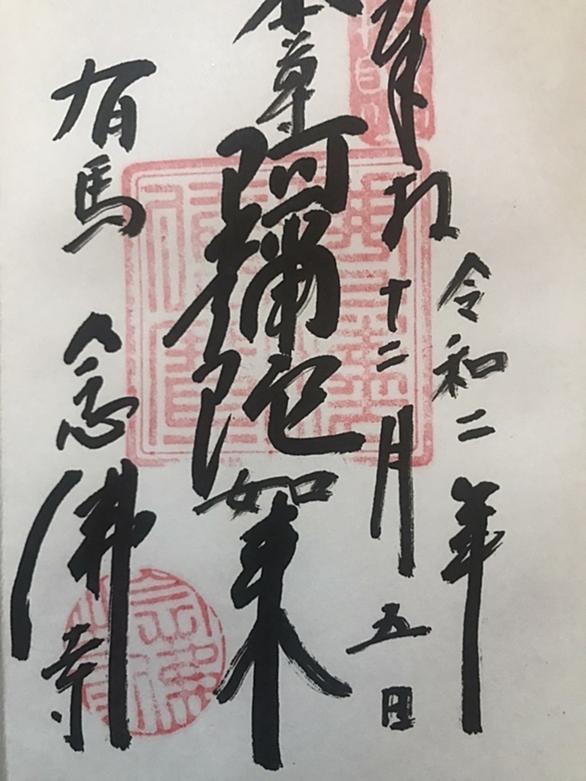 令和二年
奉拝
十二月五日
本尊
阿彌陀如来
有馬 念佛寺